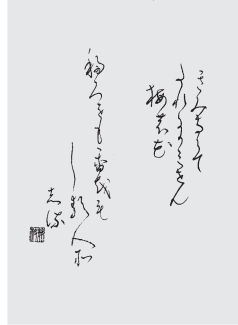 きみならて
たれにかみせん
梅の花
いろをも香をも
しる人そ
しる